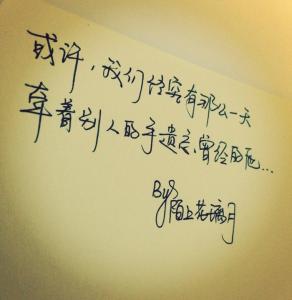 或许，我们终究有那么一天
牵着别人的手遗忘曾经的他...
By§
陌上花璃月